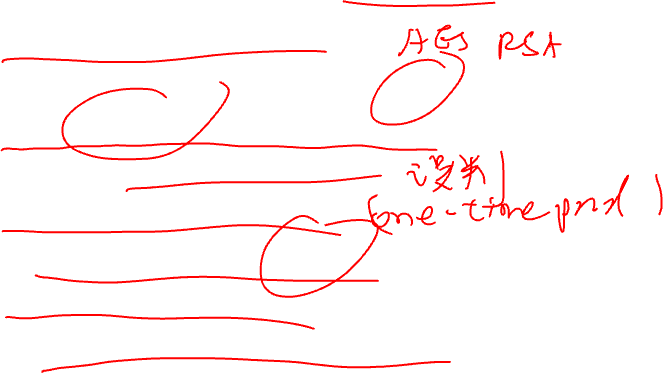 AES RSA
(one-time pad)